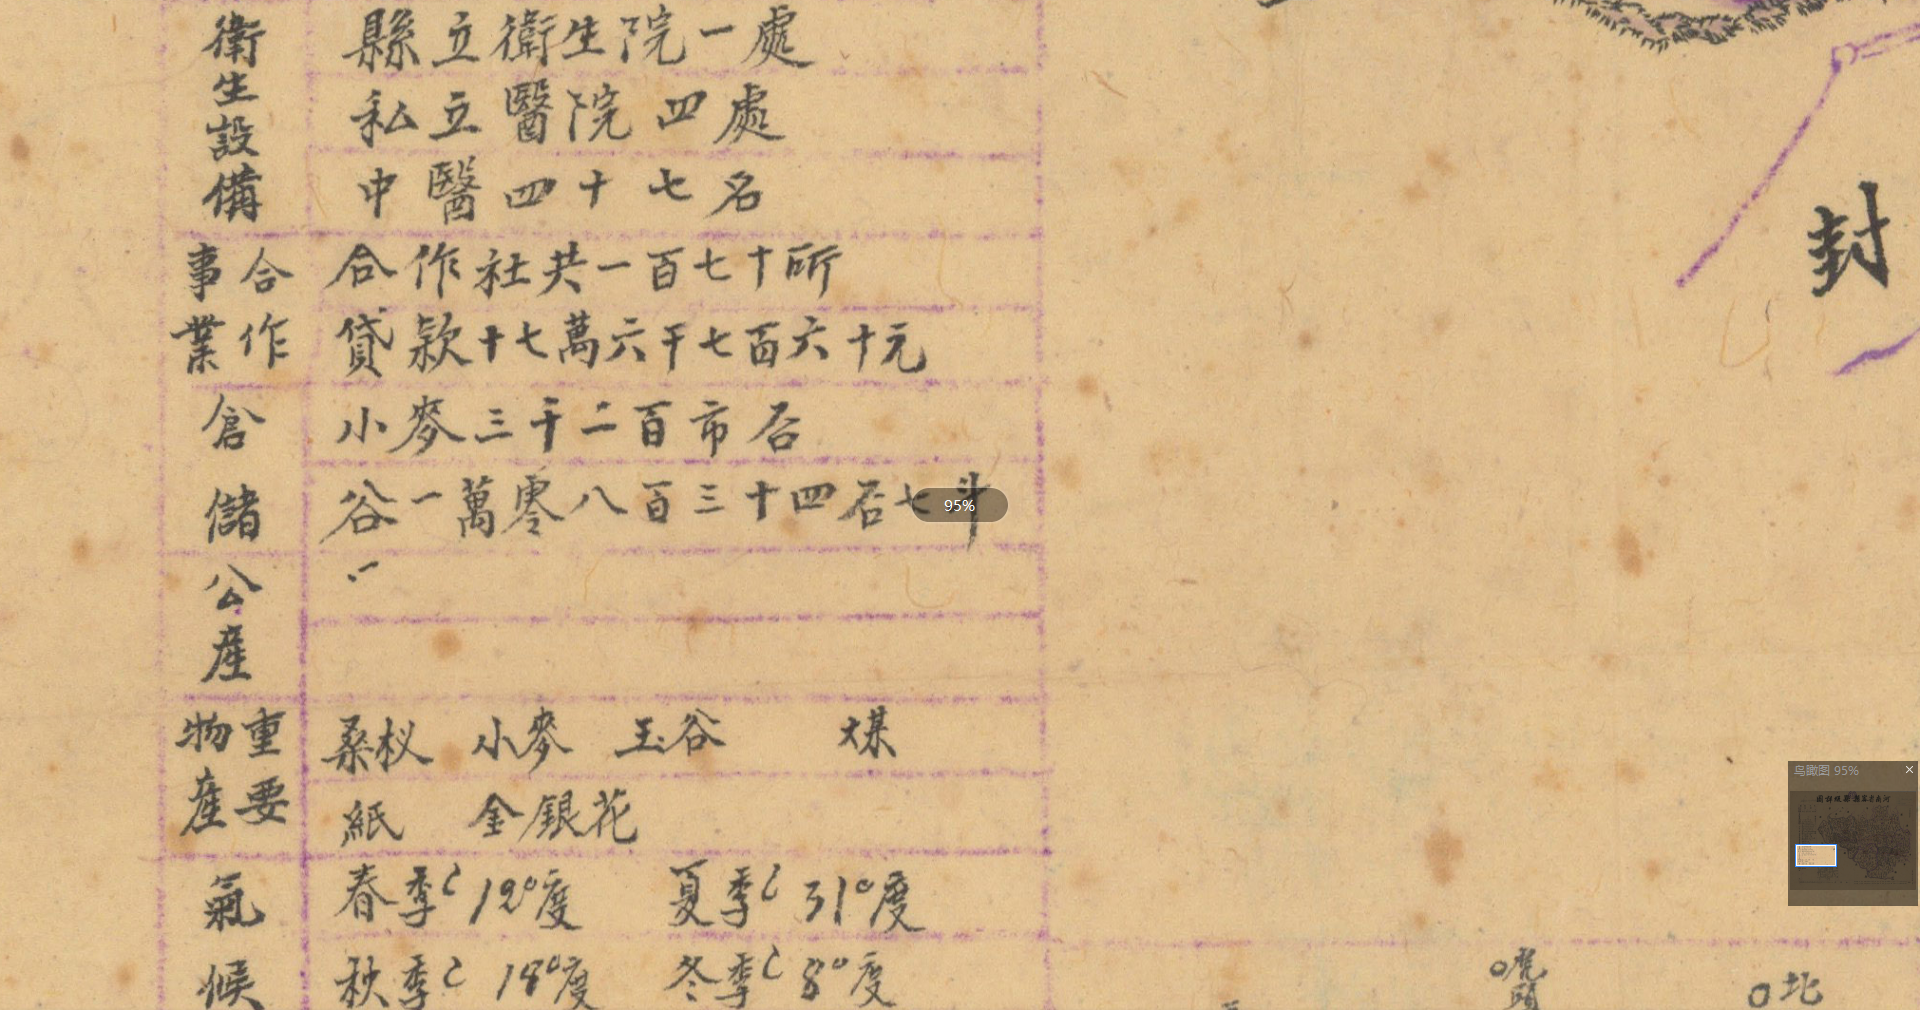 衛生設備
縣立衛生院一處
私立醫院四處
中醫四十七名
合作事業
合作社共一百七十所
貸款十七萬六千七百六十元
倉儲
小麥三千二百市石
谷一萬零八百三十四石七斗
公產
重要物產
桑杈 小麥 玉谷 煤
紙 金銀花
氣候
春季C 12°度 夏季C 31°度
秋季C 18°度 冬季C 8°度
封
虎頭
北
95%
鸟瞰图 95%